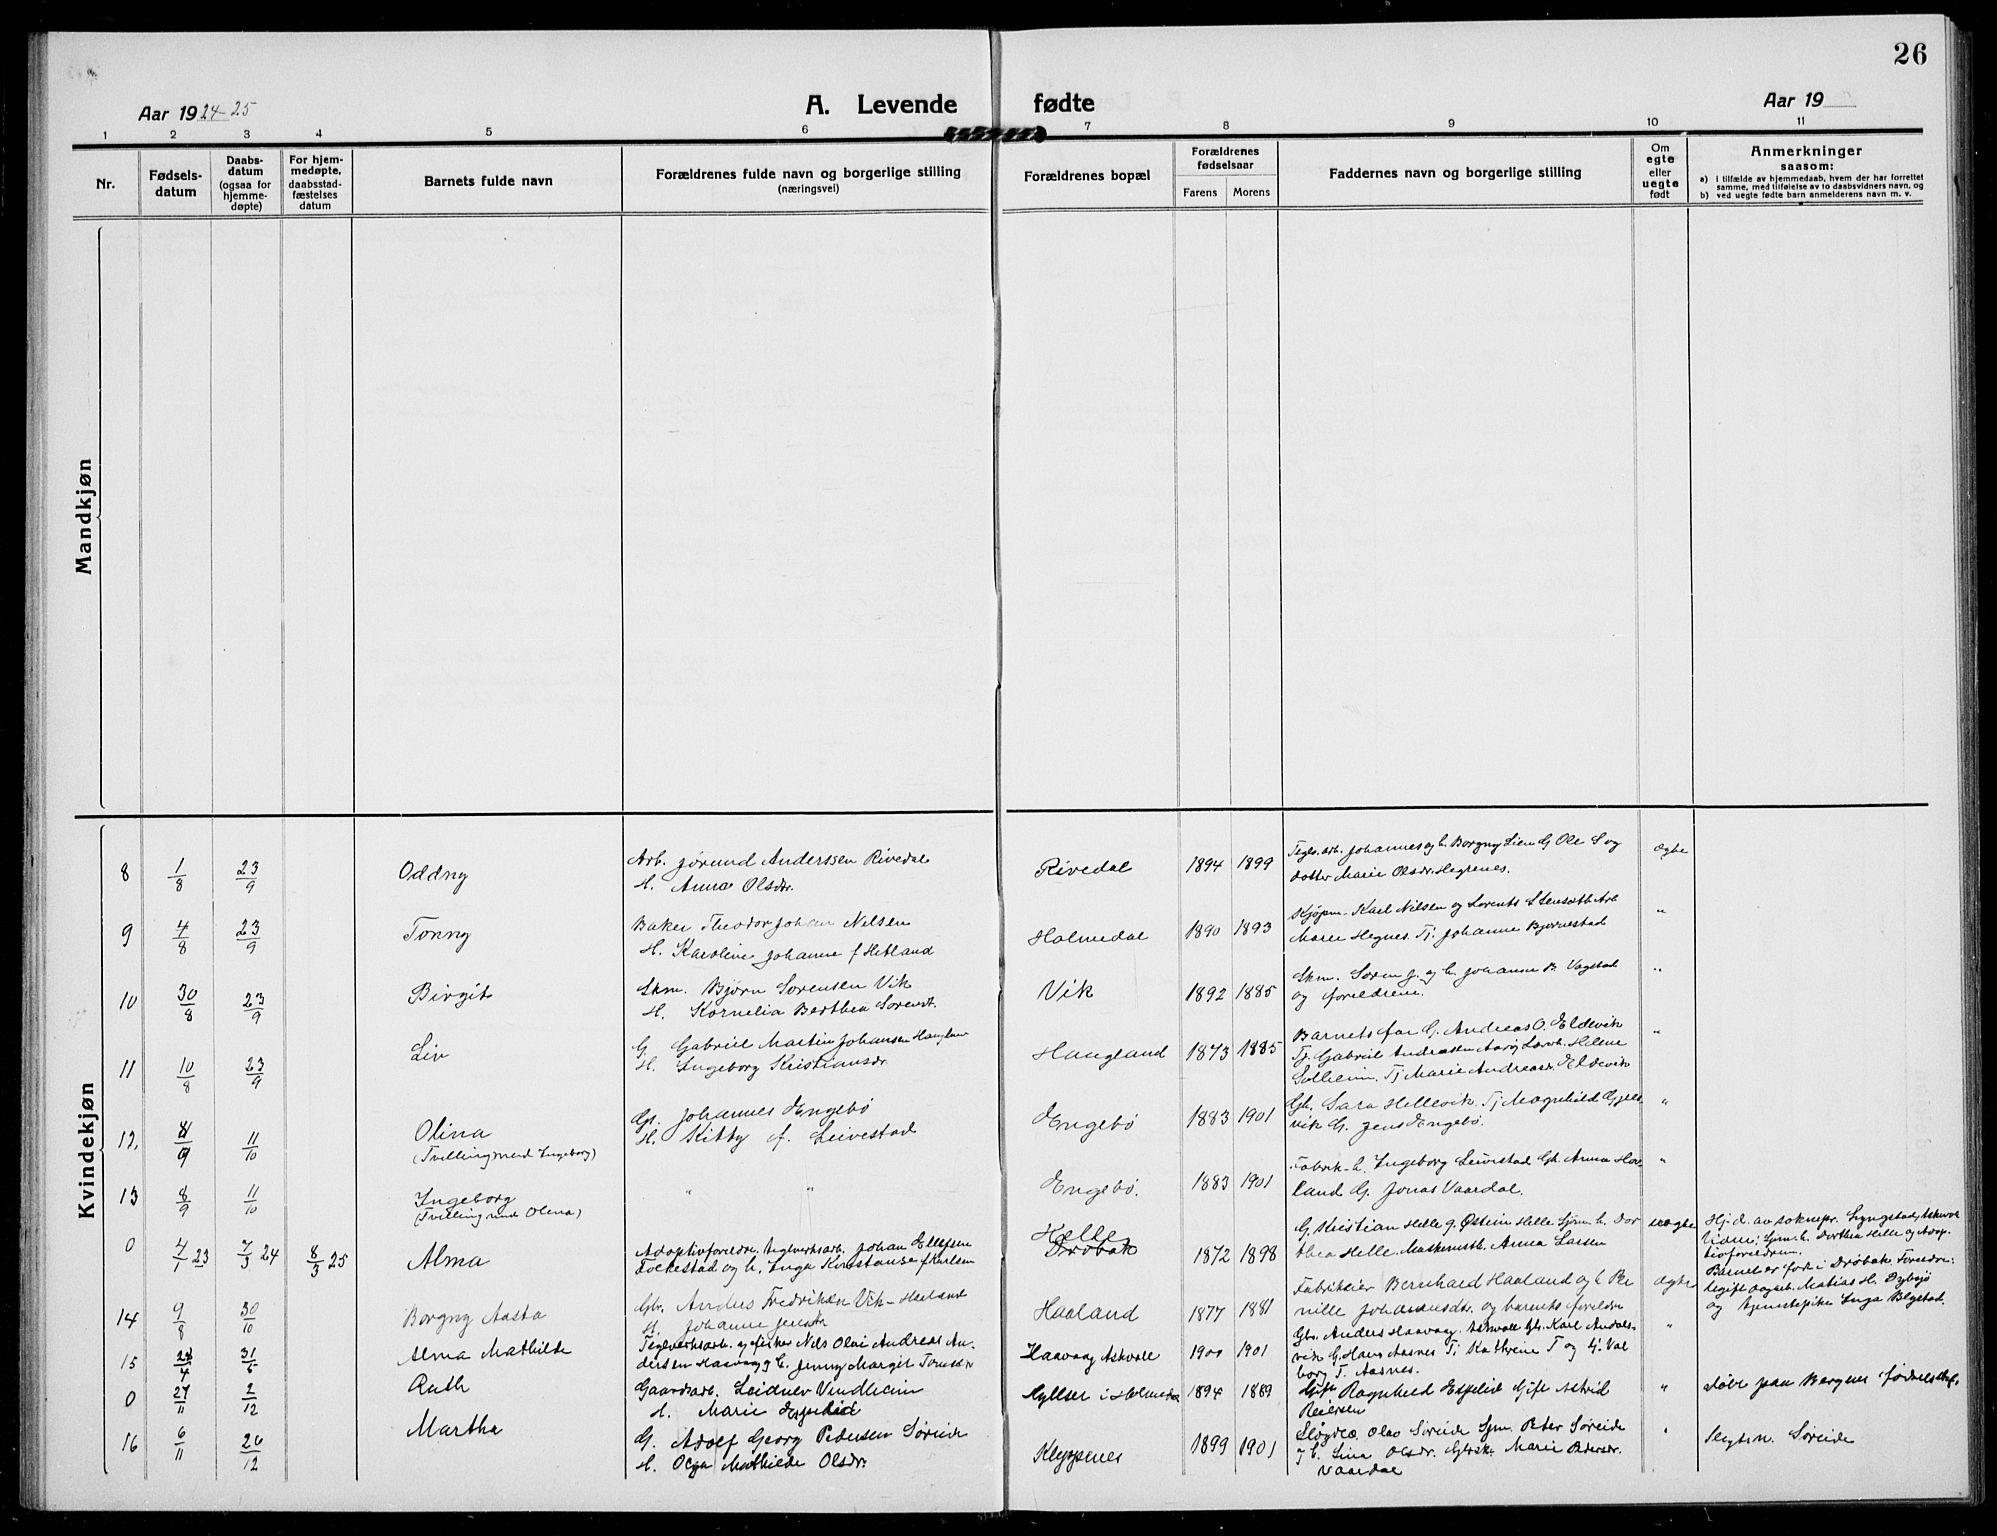 26
Aar 1924-25
A. Levende fødte
Aar 19
1 2 3 4 5 6 7 8 9 10 11
Nr.
Fødsels-
datum
Daabs-
datum
(ogsaa for
hjemme-
døpte)
For hjem-
medøpte,
daabsstad-
fæstelses
datum
Barnets fulde navn
Forældrenes fulde navn og borgerlige stilling
(næringsvei)
Forældrenes bopæl
Forældrenes
fødselsaar
Farens Morens
Faddernes navn og borgerlige stilling
Om
egte
eller
uegte
født
Anmerkninger
saasom:
a) i tilfælde av hjemmedaab, hvem der har forrettet
samme, med tilføielse av to daabsvidners navn, og
b) ved uegte fødte barn anmelderens navn m. v.
Mandkjøn
Kvindekjøn
8 1/8 23/9 Oddny
Arb. Jørund Anderssen Rivedal
H. Anna Olsdr.
Rivedal 1894 1899
Tegls.arb. Johannes og h. Borgny Lien G. Ole S og
dotter Marie Olsdr. Hegrenes.
ægte
9 4/8 23/9 Tonny
Baker Theodor Johan Nilsen
H. Karoline Johanne f Hetland
Holmedal 1890 1893
Kjøpm. Karl Nilsen og Lorents Stensæth Arb
Marie Hegnes. Tj. Johanne Bjørnestad
"
10 30/8 23/9 Birgit
Skm. Bjørn Sørensen Vik
H. Kornelia Berthea Sørensd.
Vik 1892 1885
Skm. Søren J. og h. Johanna B. Vagstad
og foreldrene.
"
11 10/8 23/9 Liv
G Gabriel Martin Johansen Haugland
H. Ingeborg Kristiansdr
Haugland 1873 1885
Barnets far G. Andreas O. Eldevik
Tj. Gabriel Andreasen Helene
Solheim. Tj Marie Andreasdr Eldevik
"
12. 8/9 11/10 Olina
(Tvilling med Ingeborg)
Gb. Johannes Engebø
H. Kitty f. Leivestad
Engebø 1883 1901
Gh. Sara Hellevik. Tj Magnhild Gjels-
vik G. Jens Engebø.
"
13 8/9 11/10 Ingeborg
(Tvilling med Olina)
" "
Engebø. 1883 1901
Fabrik-h. Ingeborg Leivestad Gh. Anna Hov-
land G. Jonas Vaardal.
"
0 4/1 23 7/3 24 8/3 25 Alma
Adoptivforeldre: Teglverksarb. Johan Ellefsen
Folkestad og h. Inga Konstanse f Karlsen
Helle
Drøbak 1872 1898
G. Kristian Helle g. Østein Helle Sjøm. h. Dor
thea Helle. Maskinistb. Anna Larsen
uægte
Hj. d. av soknepr. Lyngstad, Askvoll
Vidne: Sjøm. h. Dorthea Helle og Adop-
tivforeldrene.
Barnet er født i Drøbak. Foreldre:
ugift dagarb. Matias H. Dybsjø
og tjenestepike Inga Blystad.
14 9/8 30/10 Borgny Aasta
Gbr. Anders Fredriksen Vik-Haaland
H. Johanne Jensdr
Haaland 1877 1881
Fabrikeier Bernhard Haaland og h Per
nille Johannesdtr. og barnets foreldre
ægte
15 28/4 31/8 Alma Mathilde
Teglverksarb. og fisker Nils Olai Andreas An-
dersen Haavaag g. h. Jenny Margit Tomsdr
Haavaag Askvoll 1900 1901
Gbr. Anders Haavaag. Askvoll Gbr. Karl Andals-
vik G. Hans Aasnes Tj Kathrine T og G. Val
borg T. Aasnes.
"
0 27/11 2/12 Ruth
Gaardsarb. Leidulv Vindheim
H. Marie Espelid
Hyllser i Holmedal 1894 1889
Gift Ragnhild Espelid Gift Astrid
Reiersen
"
Døbt paa Bergens fødselshj.
16 6/11 26/12 Martha
G. Adolf Georg Pedersen Søreide
H. Olga Mathilde Olsdr.
Kleppenes 1899 1901
Sløgdlæ. Olav Søreide Sjm. Peter Søreide
T h. Lina Olsdr. Marie Pedersdr.
Vaardal
"
Slegtsn. Søreide